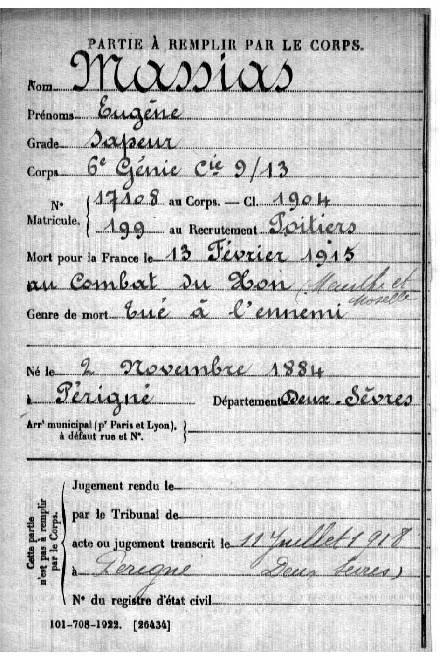 PARTIE À REMPLIR PAR LE CORPS.
Nom Massias
Prénoms Eugéne
Grade Sapeur
Corps 6e Génie Cie 9/13
N° Matricule. { 17108 au Corps. — Cl. 1904
199 au Recrutement Poitiers
Mort pour la France le 13 Février 1915
au Combat du Xon (Meurthe et Moselle
Genre de mort Tué à l'ennemi
Né le 2 Novembre 1884
à Périgné Département Deux-Sèvres
Arrt municipal (pr Paris et Lyon), à défaut rue et N°.
Cette partie n'est pas à remplir par le Corps.
Jugement rendu le
par le Tribunal de
acte ou jugement transcrit le 11 Juillet 1918
à Perigne Deux Sevres)
N° du registre d'état civil
101-708-1922. [26434]